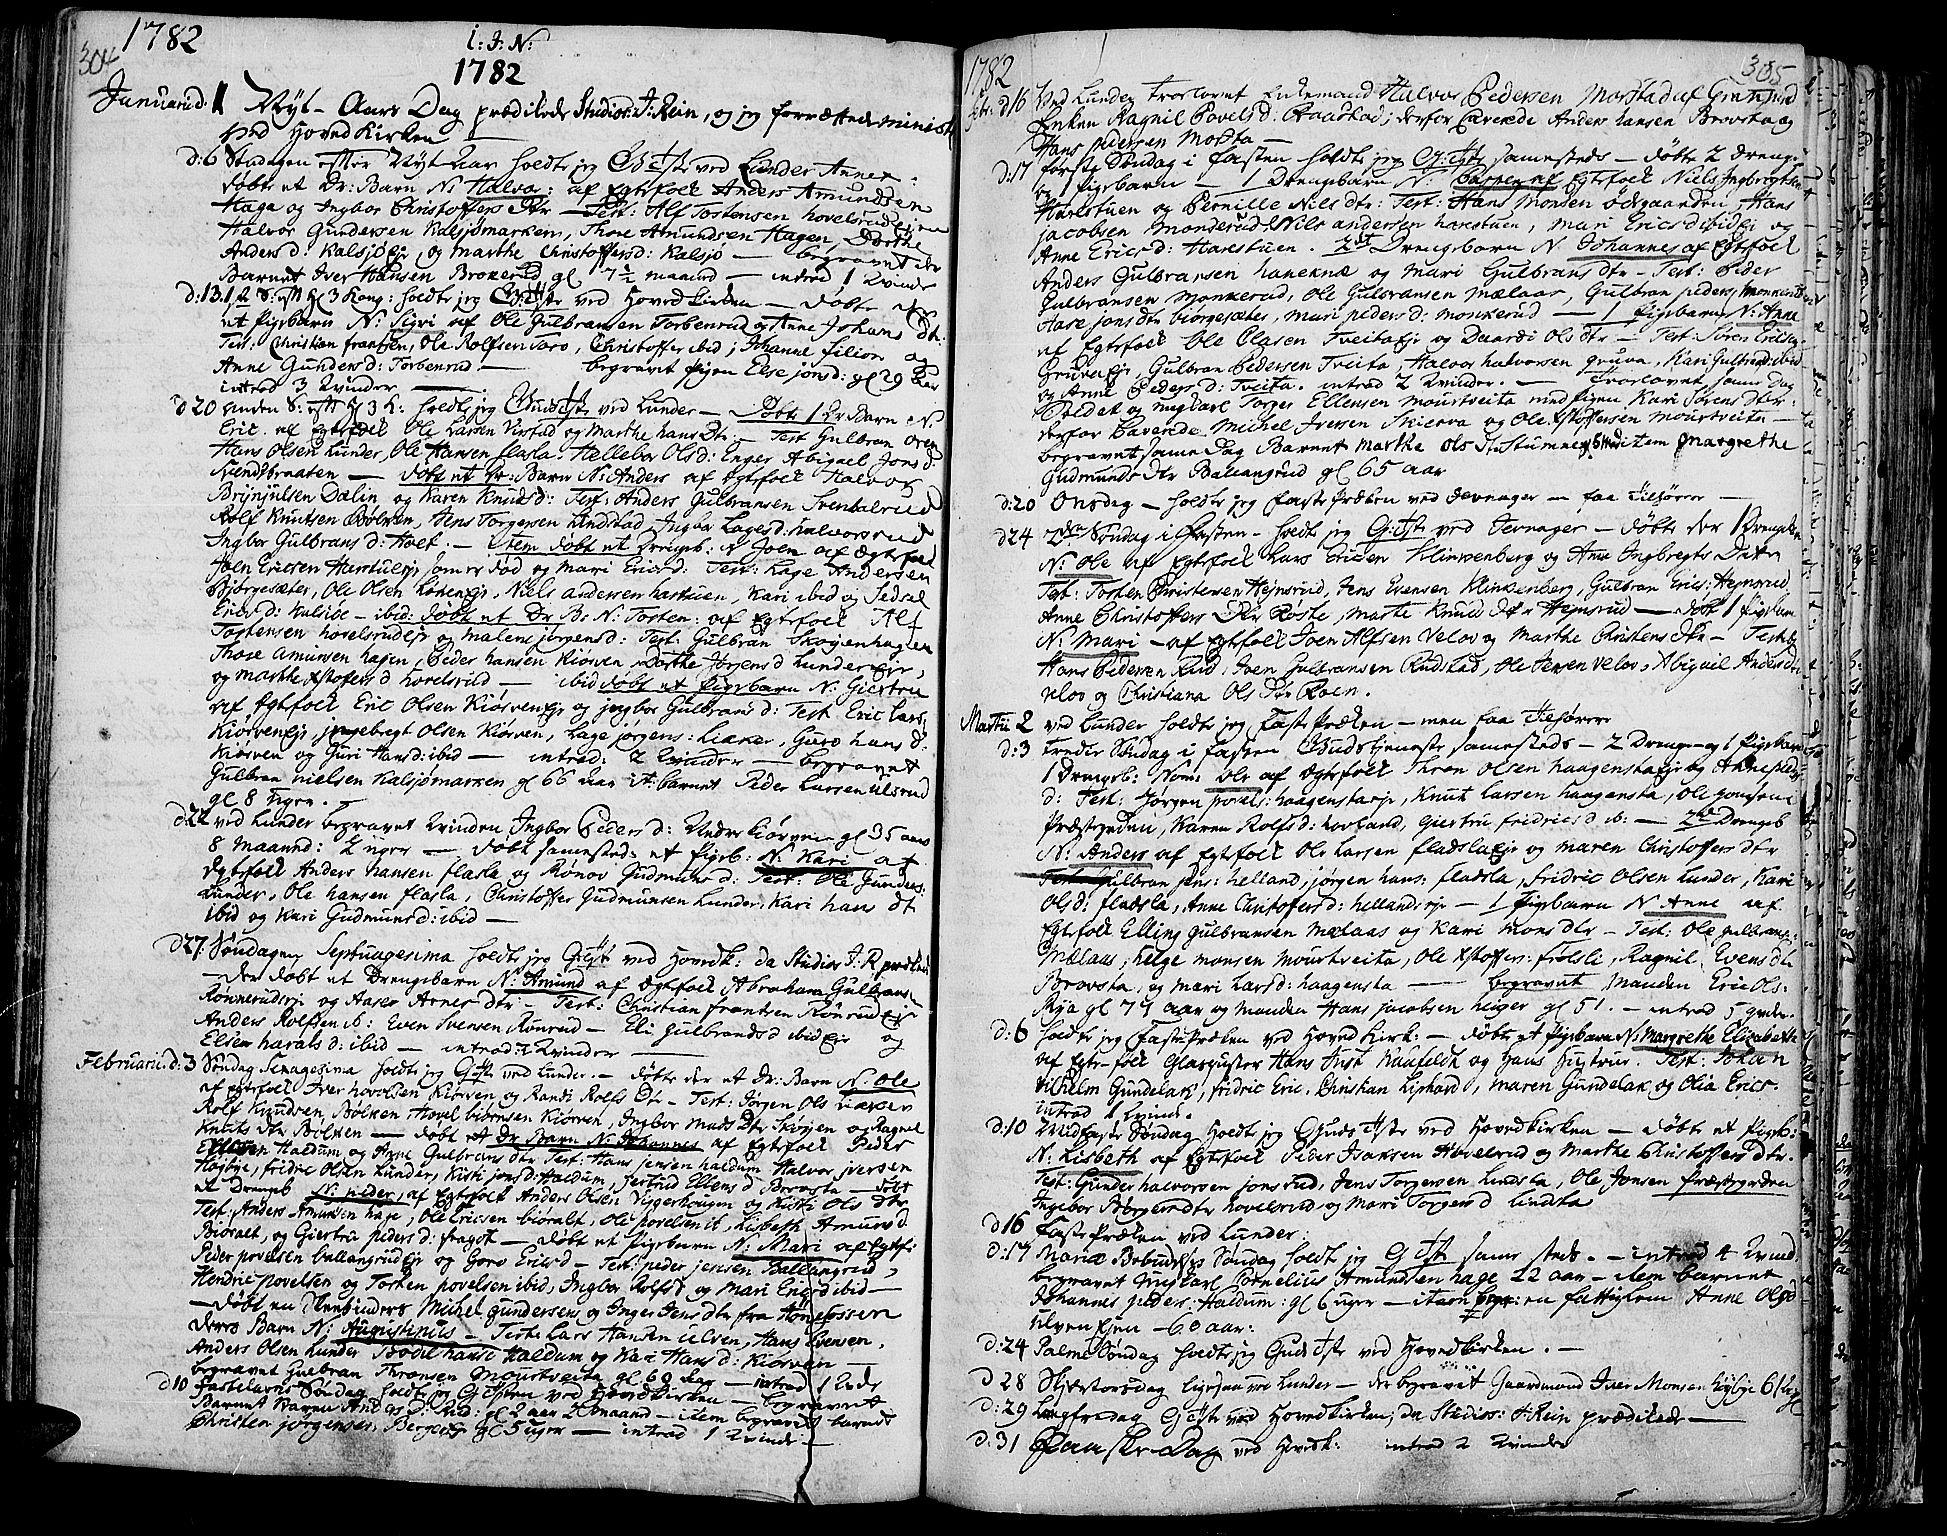 1782
304
i: J: N:
1782
Januarii d: 1 Nyt-Aars Dag prædikede Studios: J: Rein, og jeg forrættede minist
ved Hoved Kirken
d: 6 Søndagen efter Nyt Aar holdte jeg ved Lunder Annex
døbte et Dr: Barn N: Halvor: af Egtefolk Anders Amundsen
Haga og Ingbor Christoffers Dtr — Test: Alf Tostensen hovelsrudejen
Halvor Gundersen Kalsjømarken, Thore Amundsen Hagen, Dorthe
Anders d: Kalsjø Eje, og Marthe Christoffersd: Kalsjø — begravet der
Barnet Iver Hansen Brokerud gl 7½ maaned — introd 1 Kvinde
d: 13. 1ste S: eft H 3 Kong: holdte jeg ved Hoved Kirken — døbte
et Pigebarn N: Sigri af Ole Gulbransen Torbenrud og Anne Johans Dtr:
Test: Christian frantsen, Ole Rolfsen, Christoffer ibid; Johanne og
Anne Gundersd: Torbenrud — begravet Pigen Else jonsd: gl 29 Aar
introd 3 Kvinder
d 20 anden S: eft H 3 K: holdte jeg ved Lunder — Døbte 1 Dr Barn N:
Eric af Egtefolk Ole Larsen og Marthe hans Dtr — Test Gulbran
Hans Olsen Lunder, Ole Hansen flasla. Hellebor Olsd: Enger Abigael Jonsd:
Svendsbraaten — døbt et Dr: Barn N: Anders af Egtefolk Halvor
Brynjulsen Dælin og Karen Knudsd: Test: Anders Gulbransen
Rolf Knutsen Bølken, Jens Torgersen Lindstad, Ingbor Lagesd. halvorsrud
Ingbor Gulbransd: Hoel. — Item døbt et Drengeb: N Joen af Egtefolk
Joen Ericsen Harstueje som er død og Mari Ericsd: Test: Lage Andersen
Bjørgesæter, Ole Olsen, Niels andersen harstuen, Kari ibid og Sedsel
Ericsd: Kalsiøe — ibid: døbt et Dr B: N: Tosten: af Egtefolk Alf
Tostensen hovelsrudeje og malene jørgensd: Test: Gulbran Skoyenhagen
Thore amunsen hagen, Peder hansen Kiørven, Dorthe Jørgensd Lunder eje,
og Marthe Xstofersd hovelsrud — ibid døbt et Pigebarn N: Giertru
af Egtefolk Eric Olsen Kiørven Eje og jngbor Gulbransd: Test Eric Lars
Kiørven Eje, jngebregt Olsen Kiørven, Lage jørgens: Liaker, Guro hansd:
Kiørven og Guri Hansd: ibid — introd: 2 Kvinder — begravet
Gulbran Nielsen Kalsjømarken gl 66 aar it: barnet Peder Larsen Ulsrud
gl 8 Uger.
d: 22 ved Lunder begravet Kvinden Ingbor Pedersd: Undre Kiørven gl 35 aar
8 Maaned: 2 uger — døbt samesteds et Pigeb: N: Kari af
Egtefolk Anders hansen flasla og Rønov Gudmunsd: Test: Ole Gunders:
Lunder, Ole hansen flasla, Christoffer Gudmunsen Lunder, Kari hans dt
ibid og Kari Gudmunsd: ibid —
d 27. Søndagen Septuagesima holdt jeg ved Hovedk: da Studios J: R prædikede
— der døbt et Drengebarn N: Amund af Egtefolk Abraham Gulbrans
Rønnerudeje og Aase Arnes dtr — Test: Christian frantsen Rønrud Eje
Anders Rolfsen ib: Even Svensen Rønrud — Eli Gulbrandsd ibid Eje og
Elsen haralsd: ibid — introd: 2 Kvinder —
Februarii: d: 3 Søndag Sexagesima holdt jeg ved Lunder. — døbte der et Dr: Barn N. Ole
af egtefolk Iver hovelsen Kiørven og Randi Rolfs Dtr — Test: Jørgen Ols Liaker
Rolf Knudsen, Bølken Hovel biørnsen Kiørven, Ingbor Mads Dtr Skøyen og Ragnil
Knuts dtr Bølken — døbt et Dr Barn N: Johannes af Egtefolk Peder
Haldum og Anne Gulbrans dtr Test: Hans jensen haldum Halvor jversen
Høybye, fridric Olsen Lunder, Kisti jonsd: Haldum, jertrud Ellensd Brovsta — Døbt
et Drengeb N: peder, af Egtefolk Anders Olsen Viggerhougen og Kisti Ols Dtr
Test: Anders Amunsen hage, Ole Ericsen biøralt, Ole povelsen it, Lisbeth Amunsd
Bioralt, og Giertru pedersd: fragot — døbt et Pigebarn N: Mari af Egtef:
Peder povelsen ballangrudeje og Goro Ericsd — Test: peder jensen Ballangrud,
Hendric povelsen og Tosten povelsen ibid, Ingbor Rolfsd og Mari Ericsd ibid —
— døbt en Skenbinders Michel gundersens og Inger Jens dtr fra Hønefossen
deres Barn N: Augustinus — Teste Lars Hansen Ulven, Hans Evensen,
Anders Olsen Lunder Bodil hansd Haldum og Kari Hansd: Kiørven —
begravet Gulbran Thronsen Moustveita gl 60 Aar — introd 1 Kvinde
d 10 Fastelavns Søndag holdt jeg ved Hovedkirken — begravet
Barnet Karen And: gl 2 aar 2 maaned — item begravet barnet
Christen Jørgensen, Berger gl 5 uger — introd 1 Kvinde: —
1782
305
Febr: d 16 Ved Lunder trolovet Enkemand Halvor Pedersen Morstad af Gran
Enken Ragnil Povelsd. Raastad; derfor Caverede Anders hansen Brovsta og
Hans pedersen Mosta —
d: 17 første Søndag i fasten holdte jeg samesteds — døbte 2 Drenge
og 1 Pigebarn — 1 Drengebarn N. Casper af Egtefolk Niels Ingbregtsen
Harestuen og Pernille Nils dtr: Test: Hans Monsen ødegaarden, Hans
jacobsen Monderud, Nils andersen harstuen, Mari Ericsd ibid Eje og
Anne Ericsd: Harestuen. 2det Drengebarn N. Johannes af Egtefolk
Anders Gulbransen haneknæ og Mari Gulbrans dtr — Test: Peder
Gulbransen Monkerud, Ole Gulbransen Mælaas, Gulbran peders: Monkerud
Aase jons dtr biørgesæter, Mari pedersd: monkerud — 1 Pigebarn N: Anne
af Egtefolk Ole Olasen Tveitaeje og Daardi Ols dtr — Test: Soren Ericsen
Gruveeje, Gulbran Pedersen Tveita, Halvor halvorsen gruva, Kari Gulbrd: ibid
og Anne Pedersd: Tveita. introd 2 Kvinder. — Troelovet same Dag
Soldat og ungkarl Torger Ellensen Mourtveita med Pigen Kari Sørens dtr.
derfor Caverede Michel Iversen Skierva og Ole Xstoffersen Mourtveita —
begravet same Dag Barnet Marthe Ols Dtr Stumne item Margrethe
Gudmunds dtr Ballangrud gl 65 aar
d: 20 Onsdag — holdte jeg faste Præken ved Jevnager — faa Tilhører —
d 24 2den Søndag i fasten — holdt jeg ved Jevnager — døbte der 1 Drengebn
N: Ole af Egtefolk Lars Ericsen Klinkenberg og Anne Ingbregts Datr
Test: Tosten Christensen Hejnsrud, Jens Evensen Klinkenberg, Gulbran Erics: Hejnsrud
Anne Christoffers Dtr Røste, Marte Knuds dtr Hejnsrud — døbt 1 Pigebarn
N: Mari — af Egtefolk Joen Alfsen Velo og Marthe Christens Dtr — Test:
Hans Pedersen Rud, Joen Gulbransen Rudstad, Ole Jensen Velo, Abigail Anders dtr
velo og Christiana Ols Dtr Roen.
Martii 2 ved Lunder holdt jeg Faste Præken — men faa Tilhører
d: 3 Tredie Søndag i fasten Gudstjeneste samesteds — 2 Drenge- og 1 Pigebarn
1 Drengeb: Nom: Ole af Egtefolk Thron Olsen haagenstaeje og Anne peders
d: Test: Jørgen povels: haagenstaeje, Knut Larsen haagensta, Ole jonsen
Præstgrden, Karen Rolfsd: hovland, Giertru fridricsd ib: — 2det Drengeb
N: Anders af Egtefolk Ole Larsen fladsla Eje og Maren Christoffers dtr
Gulbran jens: helland, jørgen hans: fladsla, fridric Olsen Lunder, Kari
Olsd: fladsla, Anne Christofersd: hellands eje — 1 Pigebarn N: Anne af
Egtefolk Elling gulbransen Mælaas og Kari Mons dtr — Test: Ole gulbrans:
Mælaas, Helge Monsen Mourtveita, Ole Xstoffers: frøsli, Ragnil Evens dtr
Brovsta, og Mari Larsd: haagensta — begravet Manden Eric Ols:
Rya gl 74 aar og Manden Hans jacobsen heiger gl 51. — introd 5 qvder
d: 6 holdte jeg FastePræken ved Hoved Kirk: — døbte et Pigebarn N: Margrethe Elisabeth
af Egte-folk Glaspuster Hans Just Kaufeldt og Hans Hustrue Test: Johan
Vilhelm Gundelak, fridric Eric. Christian, Maren Gundelak og Olia Erics.
introd 1 Kvinde.
d: 10 Midfaste Søndag holdte jeg Guds Tjste ved Hovedkirken — døbte et Pigeb:
N: Lisbeth af Egtefolk Peder Isaksen Hovelsrud og Marthe Christoffers dtr.
Test: Gunder halvorsen jonsrud, Jens Torgersen Lindsta, Ole Jonsen præstgrden
Ingebor Børgers dtr hovelsrud og Mari Torgersd Lindsta
d 16 Faste Præken ved Lunder.
d: 17 Mariæ Bebudelses Søndag holdt jeg same steds. — introd 4 Kvind
begravet ungkarl Cornelius Amundsen hage 22 aar — item barnet
Johannes peders: Haldum: gl 6 uger — item begr: en fattiglem Anne Olsd
ulven ejen — 60 aar:
d: 24 Palme Søndag holdt jeg Guds Tjste ved Hovedkirken. —
d 28 Skjertorsdag ligesaa ved Lunder — der begravet Gaardmand Iver Monsen høybye 61
d: 29 Langfredag ved Hovedkirken; da Studios: J Rein prædikede —
d: 31 Paaske-Dag ved Hovedk: introd 2 Kvinder